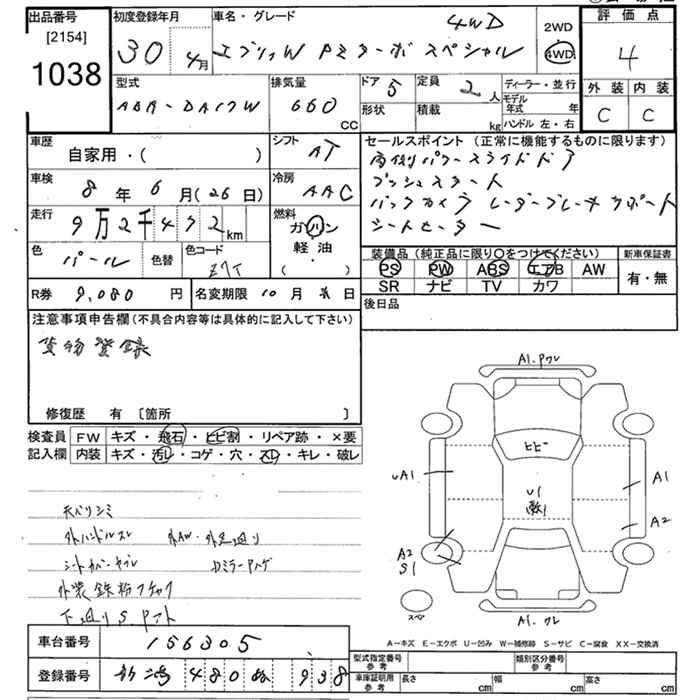 出品番号
[2154]
1038
初度登録年月
30 年 4月
車名・グレード
4WD
エブリィW PZターボスペシャル
2WD
4WD
評価点
4
外装 内装
C C
型式
ABA-DA17W
排気量
660
CC
ドア 5
形状
定員 2人
積載 kg
ディーラー・並行
モデル年式 年
ハンドル 左・右
車歴
自家用・( )
シフト
AT
車検
8年6月(26日)
冷房
AAC
走行
9万2千492km
燃料
ガソリン
軽油
( )
色
パール
色替
色コード
Z7T
R券 9,080円
名変期限 10月末日
セールスポイント(正常に機能するものに限ります)
両側パワースライドドア
プッシュスタート
バックカメラ レーダーブレーキサポート
シートヒーター
装備品(純正品に限り〇をつけてください)
PS PW ABS エアB AW
SR ナビ TV カワ
新車保証書
有・無
後日品
注意事項申告欄(不具合内容等は具体的に記入して下さい)
貨物登録
修復歴 有 〔箇所 〕
検査員
記入欄
FW キズ・飛石・ヒビ割・リペア跡・×要
内装 キズ・汚レ・コゲ・穴・スレ・キレ・破レ
天バリシミ
外ハンドルスレ 外AW・外足廻り
シートカバーヤブレ Dミラーハゲ
外装鉄粉フチャク
下廻りS. Pアト
A1.ワレ
ヒビ
U1
A1
A1
A2
A2
S1
スペア
A1.ワレ
A-キズ E-エクボ U-凹み W-補修跡 S-サビ C-腐食 XX-交換済
車台番号 156305
登録番号 480 938
型式指定番号
参考
類別区分番号
参考
車庫証明用
参考
長さ cm 幅 cm 高さ cm